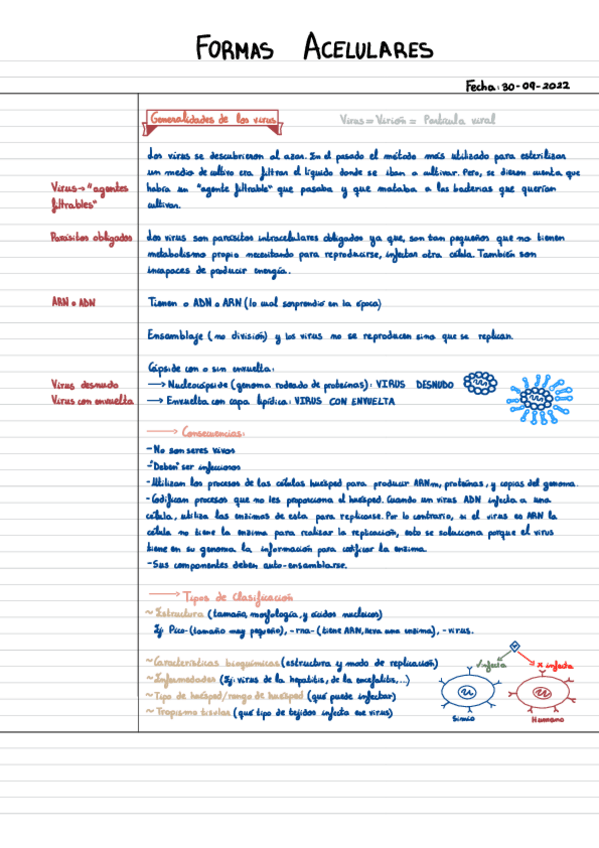 FORMAS ACELULARES
Fecha: 30-09-2022
Generalidades de los virus
Virus = Virión = Partícula viral
Los virus se descubrieron al azar. En el pasado el método más utilizado para esterilizar
un medio de cultivo era filtrar el líquido donde se iban a cultivar. Pero, se dieron cuenta que
Virus → "agentes
filtrables"
había un "agente filtrable" que pasaba y que mataba a las bacterias que querían
cultivar.
Parásitos obligados
Los virus son parásitos intracelulares obligados ya que, son tan pequeños que no tienen
metabolismo propio necesitando para reproducirse, infectar otra célula. También son
incapaces de producir energía.
ARN o ADN
Tienen o ADN o ARN (lo cual sorprendió en la época)
Ensamblaje (no división) y los virus no se reproducen sino que se replican.
Cápside con o sin envuelta:
Virus desnudo
→ Nucleocápside (genoma rodeado de proteínas): VIRUS DESNUDO
Virus con envuelta
→ Envuelta con capa lipídica: VIRUS CON ENVUELTA
→ Consecuencias:
- No son seres vivos
- "Deben" ser infecciosos
- Utilizan los procesos de las células huésped para producir ARNm, proteínas, y copias del genoma.
- Codifican procesos que no les proporciona el huésped. Cuando un virus ADN infecta a una
célula, utiliza las enzimas de esta para replicarse. Por lo contrario, si el virus es ARN la
célula no tiene la enzima para realizar la replicación, esto se soluciona porque el virus
tiene en su genoma la información para codificar la enzima.
- Sus componentes deben auto-ensamblarse.
→ Tipos de Clasificación
~ Estructura (tamaño, morfología, y ácidos nucleicos)
Ej Pico- (tamaño muy pequeño), -rna- (tiene ARN, lleva una enzima), -virus.
~ Características bioquímicas (estructura y modo de replicación)
~ Enfermedades (Ej: virus de la hepatitis, de la encefalitis,...)
~ Tipo de huésped/rango de huésped (qué puede infectar)
~ Tropismo tisular (qué tipo de tejidos infecta ese virus)
✓ infecta
x infecta
Simio
Humano